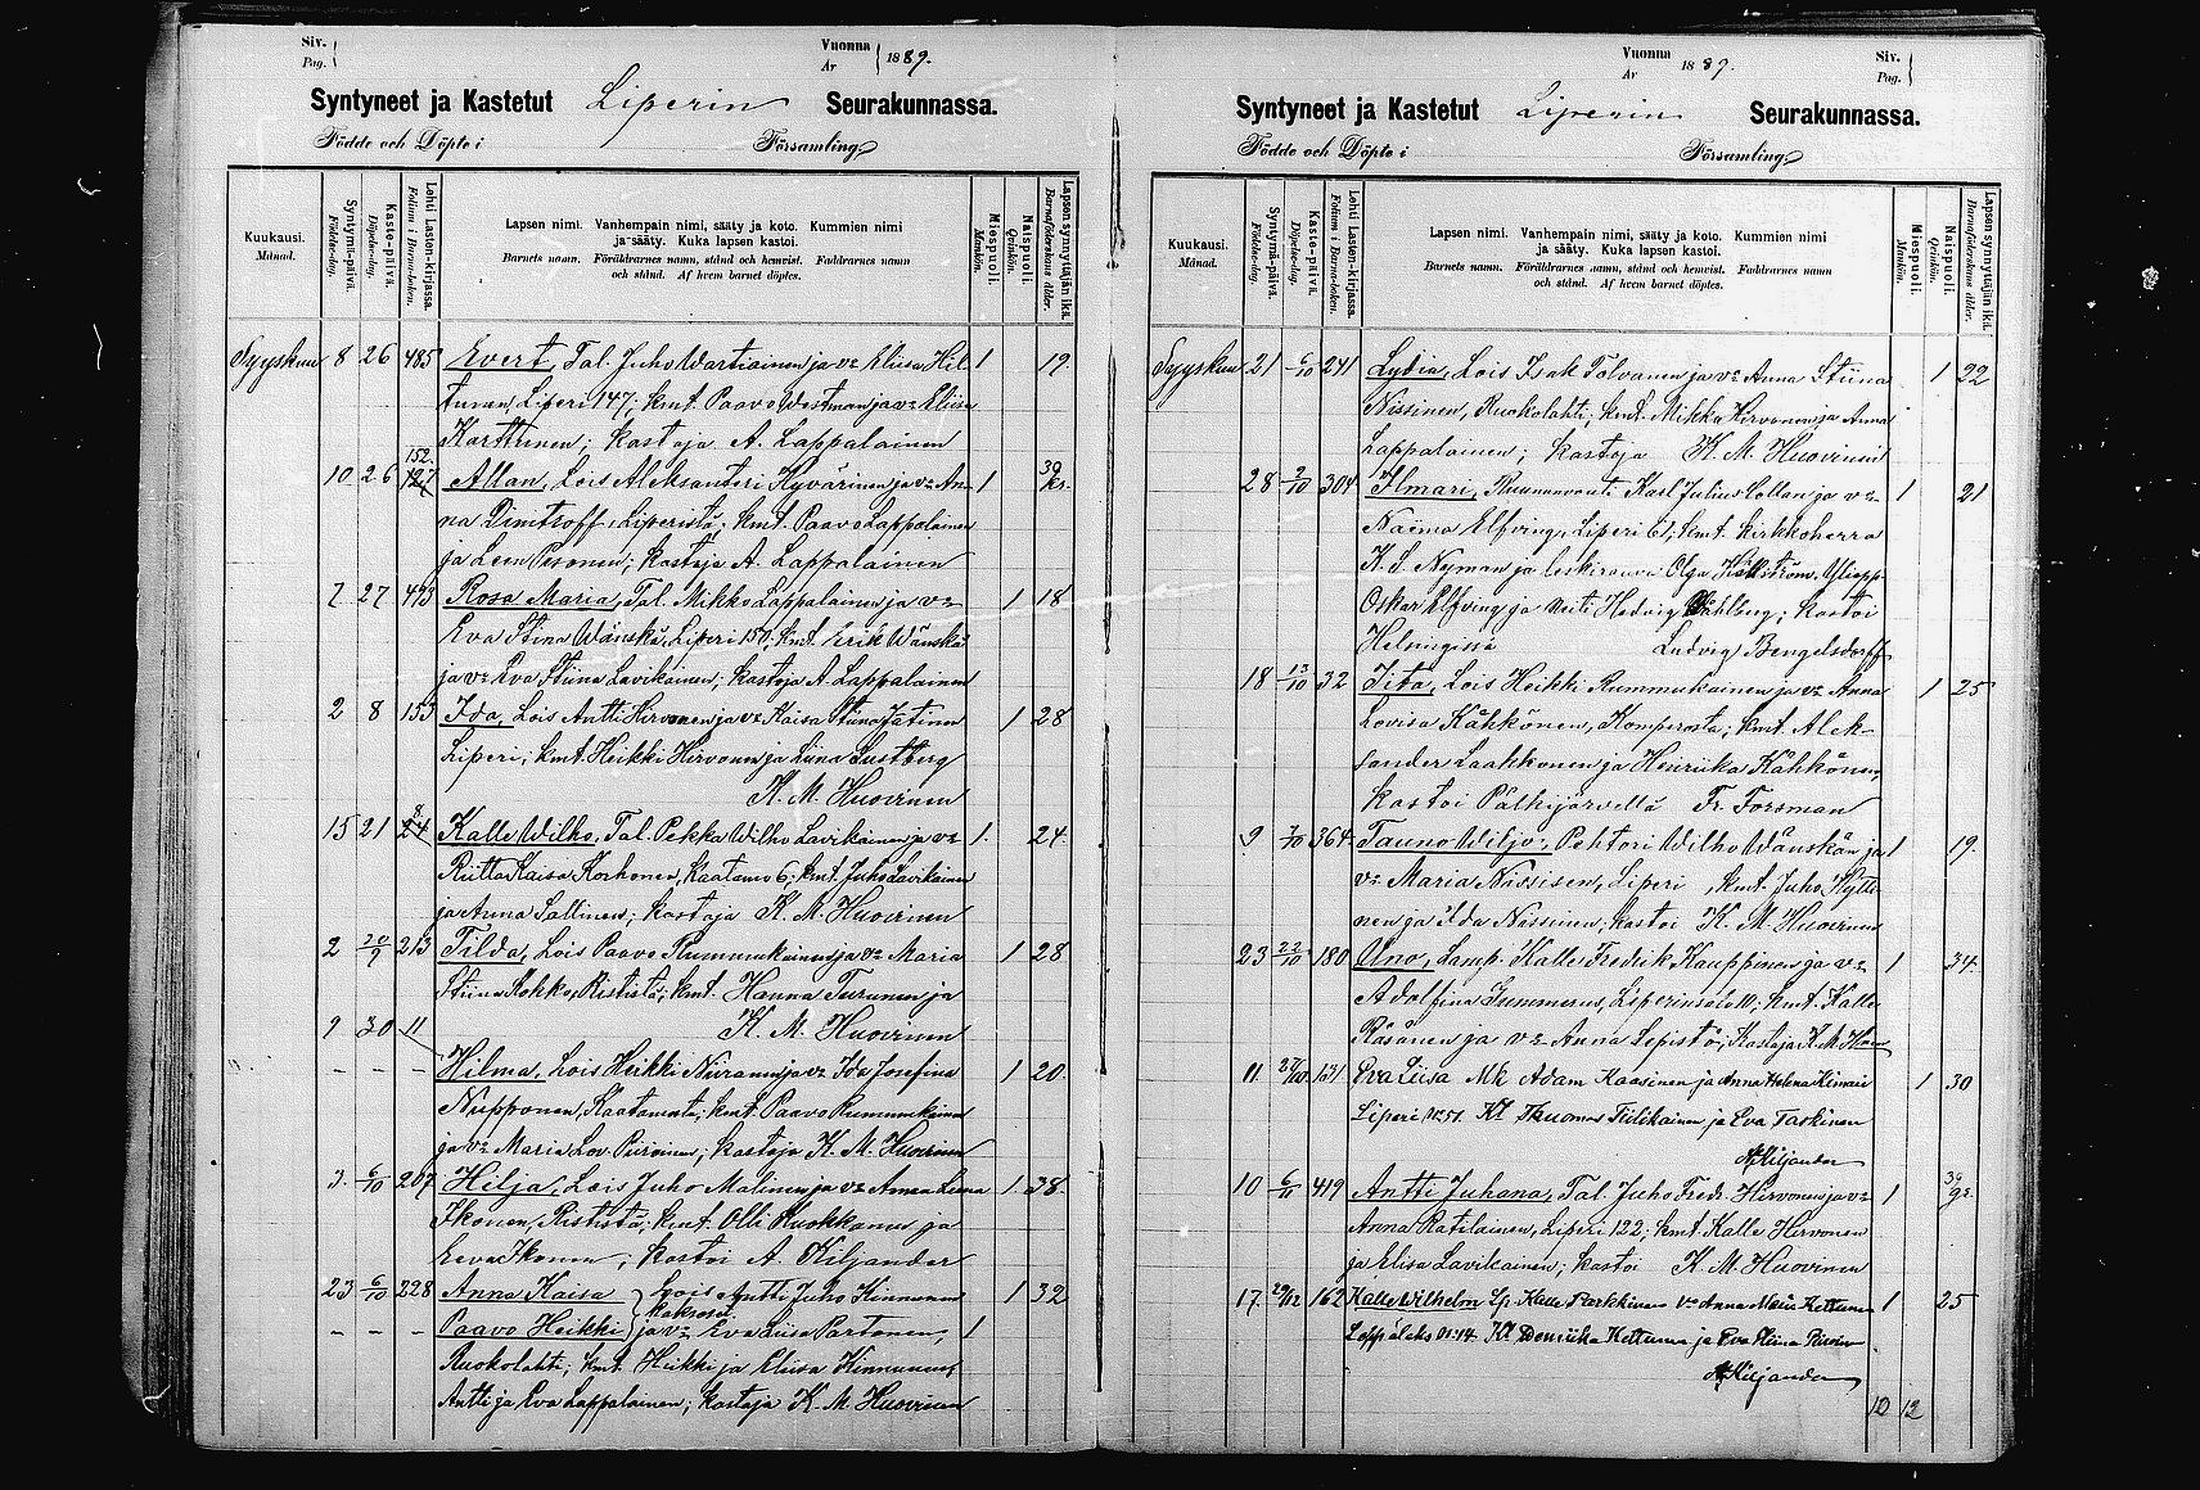 Siv.
Pag.
Vuonna
År
1889.
Syntyneet ja Kastetut Liperin Seurakunnassa.
Födde och Döpte i Församling
Kuukausi.
Månad.
Syntymä-päivä.
Födelse-dag.
Kaste-päivä.
Döpelse-dag.
Lehti Lasten-kirjassa.
Folium i Barna-boken.
Lapsen nimi. Vanhempain nimi, sääty ja koto. Kummien nimi
ja sääty. Kuka lapsen kastoi.
Barnets namn. Föräldrarnes namn, stånd och hemvist. Faddrarnes namn
och stånd. Af hvem barnet döptes.
Miespuoli.
Mankön.
Naispuoli.
Qvinkön.
Lapsen synnyttäjän ikä.
Barnaföderskans ålder.
Syyskuu 8 26 485 Evert, Tal. Juho Wartiainen ja vo Eliisa Hil- 1 19.
tunen, Liperi 147; kmt. Paavo Westman ja vo Eliisa
Karttunen; kastaja A. Lappalainen
152.
10 26 127 Allan, Lois Aleksanteri Hyvärinen ja vo An- 1 39
na Dimitroff, Liperistä; kmt. Paavo Lappalainen
ja Leen Pesonen; kastaja A. Lappalainen
7 27 493 Rosa Maria, Tal. Mikko Lappalainen ja vo 1 18
Eva Stina Wänskä, Liperi 150; kmt. Erik Wänskä
ja vo Eva Stiina Lavikainen; kastaja A. Lappalainen
2 8 153 Ida, Lois Antti Hirvonen ja vo Kaisa Stiina Jätinen 1 28
Liperi; kmt. Heikki Hirvonen ja Liina Lustberg
K. M. Huovinen
8
15 21 24 Kalle Wilho, Tal. Pekka Wilho Lavikainen ja vo 1. 24.
Riitta Kaisa Korhonen, Kaatamo 6; kmt. Juho Lavikainen
ja Anna Sallinen; kastaja K. M. Huovinen
2 30/9 213 Tilda, Lois Paavo Rummukainen ja vo Maria 1 28
Stiina Kohko, Rististä; kmt. Hanna Turunen ja
9 30 11 K. M. Huovinen
– – – Hilma, Lois Heikki Niiranen ja vo Ida Josefina 1 20.
Nupponen, Kaatamosta; kmt. Paavo Rummukainen
ja vo Maria Lov. Piiroinen; kastaja K. M. Huovinen
3. 6/10 207 Hilja, Lois Juho Malinen ja vo Anna Leena 1. 38.
Ikonen, Rististä; kmt. Olli Kuokkanen ja
Eeva Ikonen; kastoi A. Kiljander
23 6/10 228 Anna Kaisa } Lois Antti Juho Kinnunen 1 32
kaksoset.
– – – Paavo Heikki } ja vo Eva Liisa Partanen, 1
Ruokolahti; kmt. Heikki ja Eliisa Kinnunen,
Antti ja Eva Lappalainen; kastaja K. M. Huovinen
Vuonna
År
1889.
Siv.
Pag.
Syntyneet ja Kastetut Liperin Seurakunnassa.
Födde och Döpte i Församling
Kuukausi.
Månad.
Syntymä-päivä.
Födelse-dag.
Kaste-päivä.
Döpelse-dag.
Lehti Lasten-kirjassa.
Folium i Barna-boken.
Lapsen nimi. Vanhempain nimi, sääty ja koto. Kummien nimi
ja sääty. Kuka lapsen kastoi.
Barnets namn. Föräldrarnes namn, stånd och hemvist. Faddrarnes namn
och stånd. Af hvem barnet döptes.
Miespuoli.
Mankön.
Naispuoli.
Qvinkön.
Lapsen synnyttäjän ikä.
Barnaföderskans ålder.
Syyskuu 21 6/10 241 Lydia, Lois Isak Tolvanen ja vo Anna Stiina 1 22
Nissinen, Ruokolahti; kmt. Mikko Hirvonen ja Anna
Lappalainen; kastaja K. M. Huovinen
28 2/10 304 Ilmari, Ruununvouti Karl Julius Collan ja vo 1 21
Naëma Elfving, Liperi 61; kmt. kirkkoherra
K. S. Nyman ja leskirouva Olga Hällström, Yliopp.
Oskar Elfving ja neiti Hedvig Wahlberg; kastoi
Helsingissä Ludvig Bengelsdorff
18 13/10 32 Iita, Lois Heikki Rummukainen ja vo Anna 1 25
Lovisa Kähkönen, Komperosta; kmt. Alek-
sander Laakkonen ja Henriika Kähkönen,
kastoi Pälkijärvellä Fr. Forsman
9 7/10 364 Tauno Wiljo, Pehtori Wilho Wänskän ja 1 19.
vo Maria Nissisen, Liperi, kmt. Juho Kytti-
nen ja Ida Nissinen; kastoi K. M. Huovinen
23 22/10 180 Uno, Lamp. Kalle Fredrik Kauppinen ja vo 1 34
Adolfina Gummerus, Liperinsalo 10; kmt. Kalle
Räsänen ja vo Anna Lepistö; Kastaja K. M. Huov.
11. 27/10 131 Eva Liisa Mk Adam Kaasinen ja Anna Helena Kinari 1 30
Liperi No 51. Kt Thuomas Tiilikainen ja Eva Taskinen
A Kiljander
10 6/11 419 Antti Juhana, Tal. Juho Fredr. Hirvonen ja vo 1 39
Anna Ratilainen, Liperi 122; kmt. Kalle Hirvonen
ja Elisa Lavikainen; kastoi K. M. Huovinen
17. 29/12 162 Kalle Wilhelm Lp. Kalle Parkkinen vo Anna Maria Kettunen 1 25
Leppälaks No 14. Kt Henriika Kettunen ja Eva Stiina
A Kiljander
10 12